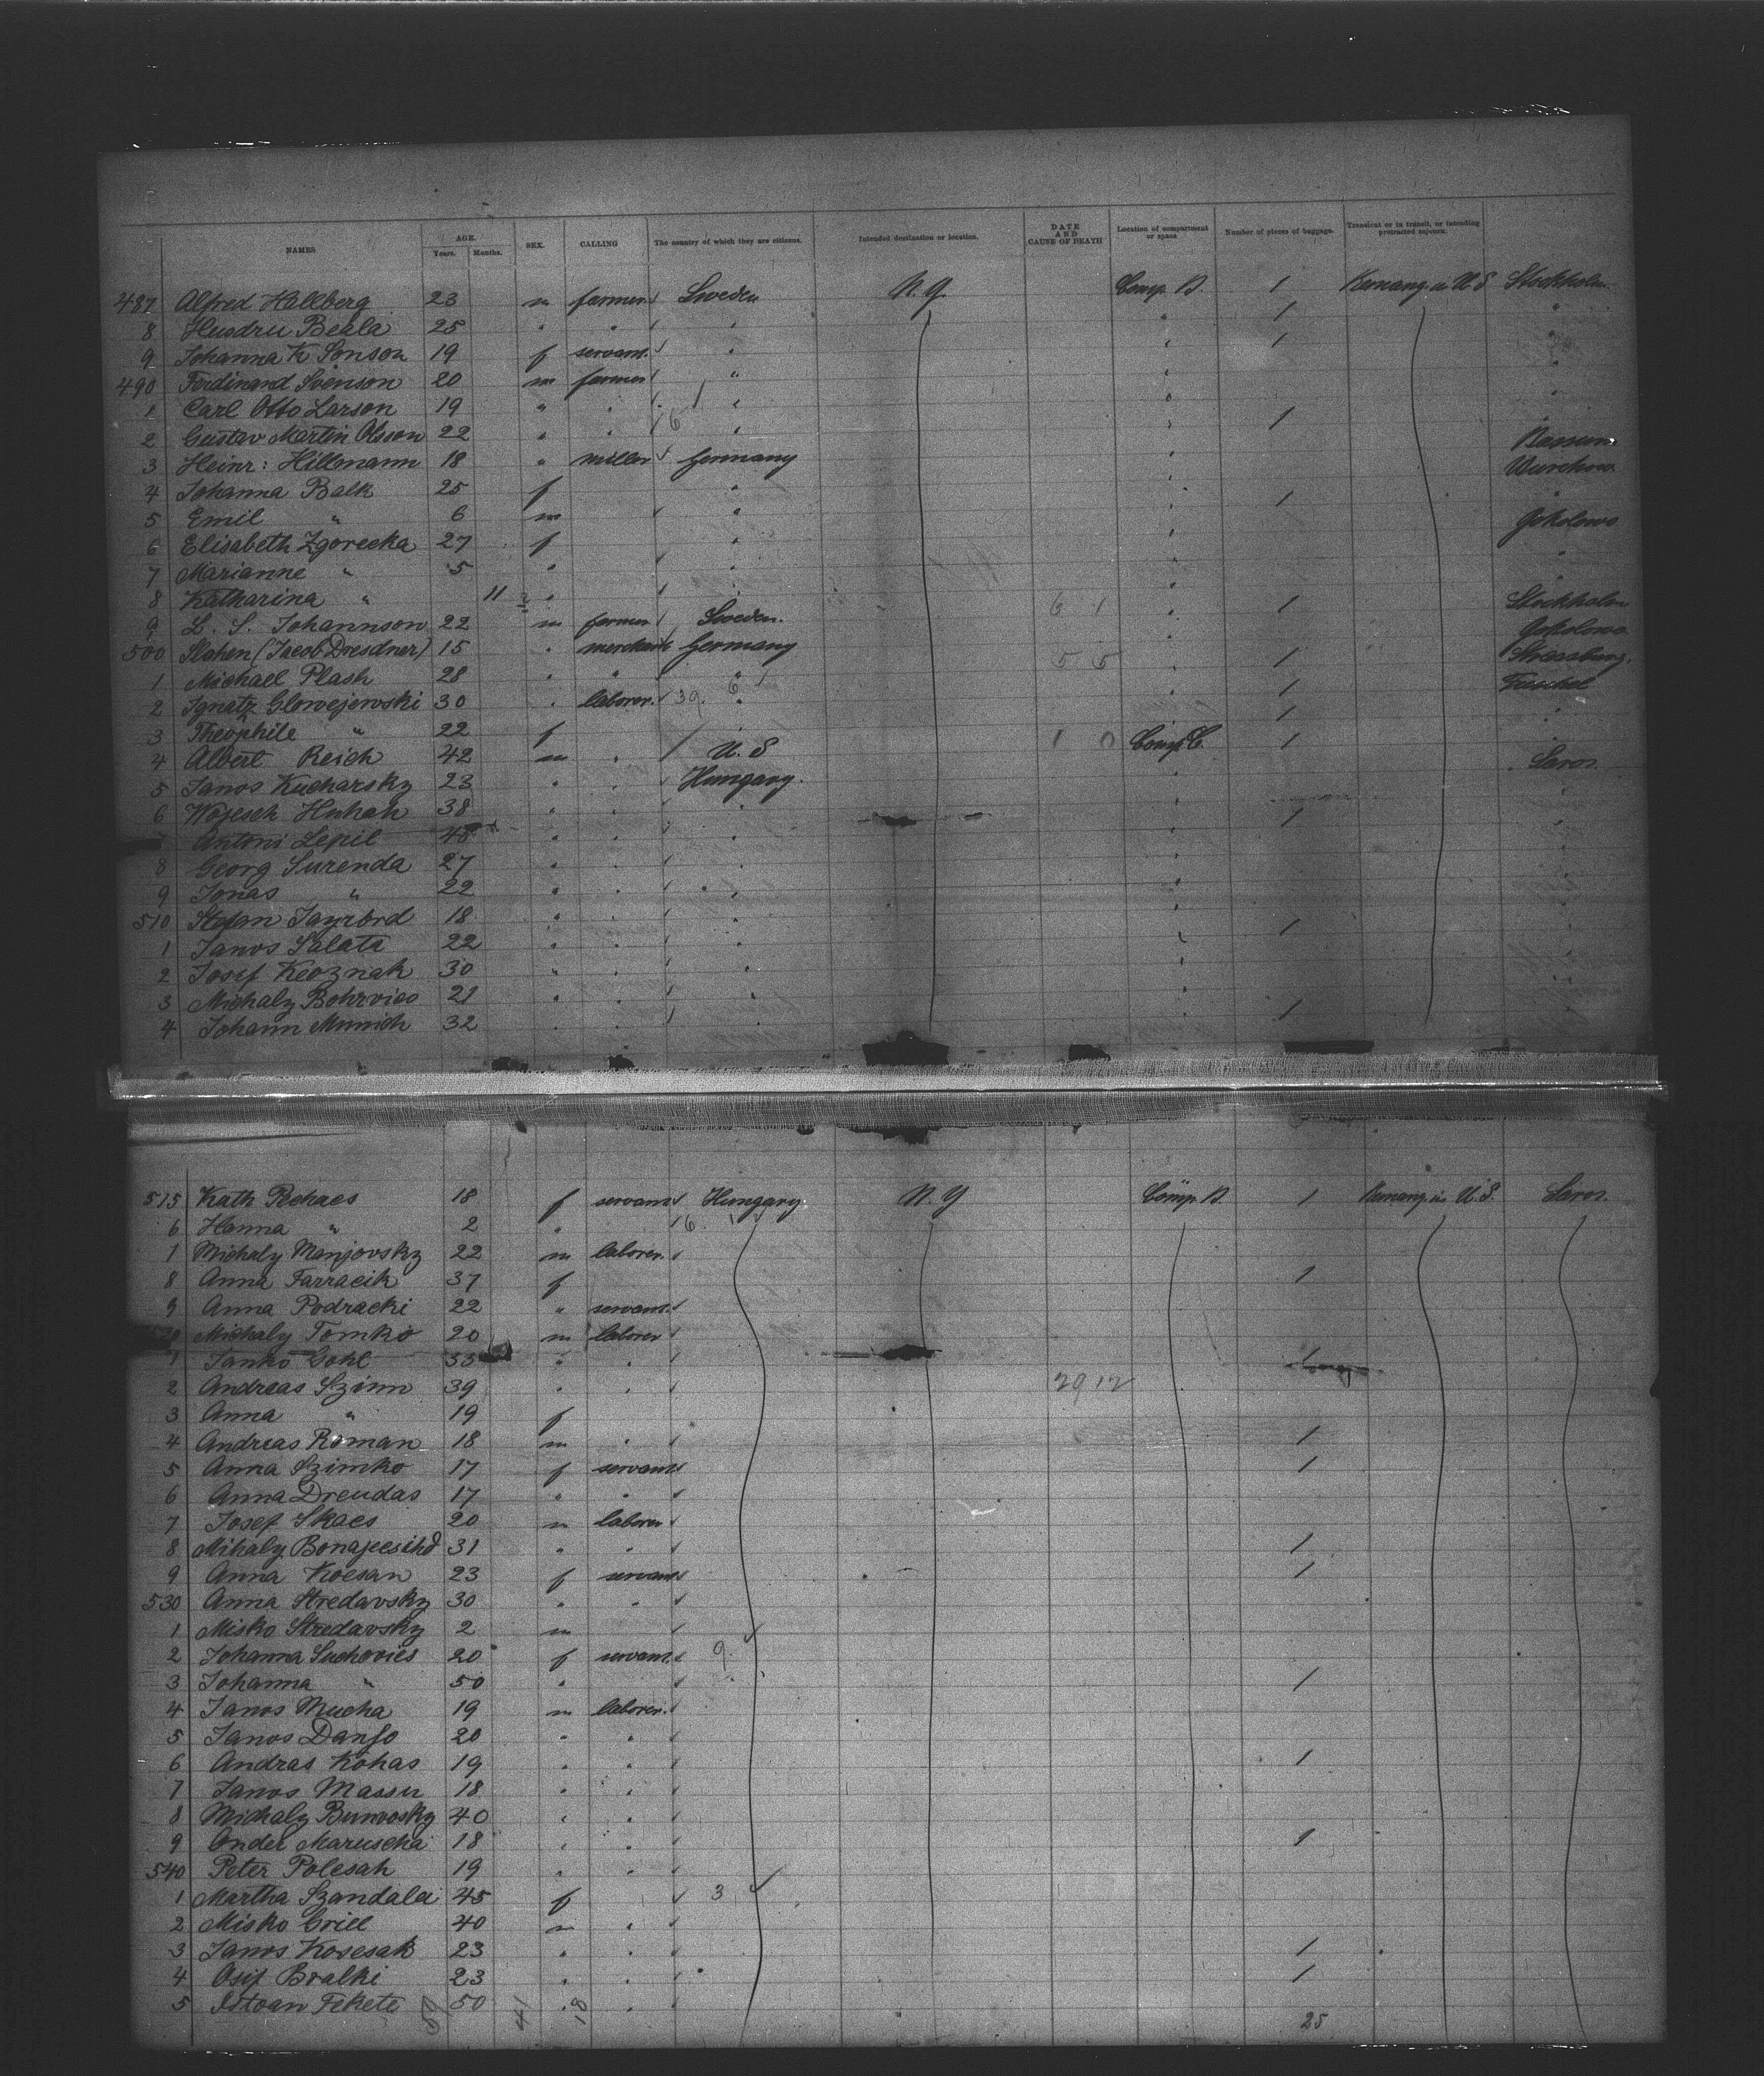 NAMES AGE. Years. Months. SEX. CALLING The country of which they are citizens. Intended destination or location. DATE AND CAUSE OF DEATH Location of compartment or space. Number of pieces of baggage. Transient or in transit, or intending protracted sojourn.
487 Alfred Hallberg 23 m farmer Sweden N.Y. Comp. D. 1 Remang. in U.S Stockholm
8 Husdru Beala 25 " " " " 1 "
9 Johanna K Sonson 19 f servant. " " 1 "
490 Ferdinand Svenson 20 m farmer " " "
1 Carl Otto Larson 19 " " " " "
2 Gustav Martin Olsson 22 " " 6 " " 1 "
3 Heinr: Hillmann 18 " miller Germany " Bassum
4 Johanna Balk 25 f " " Wurchow
5 Emil " 6 m " " 1 "
6 Elisabeth Zgorecka 27 f " " Gokolowo
7 Marianne " 5 " " " "
8 Katharina " 11 " " " "
9 L. S. Johannson 22 m farmer Sweden. 6 1 " 1 Stockholm
500 Slohen (Jacob Dresdner) 15 " merchant Germany " Gokolowo
1 Michael Plash 28 " " " 5 5 " 1 Strassburg.
2 Ignatz Glowejewski 30 " laborer. 39. 6 " " 1 Tuschel
3 Theophile " 22 f " " 1 "
4 Albert Reich 42 m " U. S 1 0 Comp. C. 1 "
5 Janos Kucharsky 23 " " Hungary. Saros
6 Wojesch Huhah 38 " " " " 1 "
7 Antoni Lepil 48 " " " " "
8 Georg Surenda 27 " " " " "
9 Jonas " 22 " " " " "
510 Stefan Jayrbrd 18 " " " " "
1 Janos Salata 22 " " " " 1 "
2 Josef Keoznak 30 " " " " "
3 Michaly Bohrvics 21 " " " " "
4 Johann Munich 32 " " " " 1 "
515 Kath Pechacs 18 f servant Hungary N. Y Comp. D. 1 Remang. in U.S. Saros.
6 Hanna " 2 " 6
7 Michaly Manjovsky 22 m laborer.
8 Anna Farracik 37 f 1
9 Anna Podracki 22 " servant.
20 Michaly Tomko 20 m laborer
1 Janko Gohl 35 " " 1
2 Andreas Szinn 39 " " 29 12
3 Anna " 19 f
4 Andreas Roman 18 m " 1
5 Anna Szimko 17 f servant 1
6 Anna Drendas 17 " "
7 Josef Skacs 20 m laborer
8 Mihaly Bonajecsihd 31 " " 1
9 Anna Koesan 23 f servant 1
530 Anna Stredavsky 30 " "
1 Misko Stredavsky 2 m
2 Johanna Suchovics 20 f servant. 9
3 Johanna " 50 " 1
4 Janos Mucha 19 m laborer.
5 Janos Danjo 20 " "
6 Andras Kohas 19 " " 1
7 Janos Massu 18 " "
8 Michaly Bunvosky 40 " "
9 Onder Maruscha 18 " " 1
540 Peter Polesah 19 " "
1 Martha Szandalei 45 f 3
2 Misko Grill 40 m "
3 Janos Kosesak 23 " " 1
4 Osif Bralki 23 " " 1
5 Istvan Fekete 50 " "
59 41 18 25